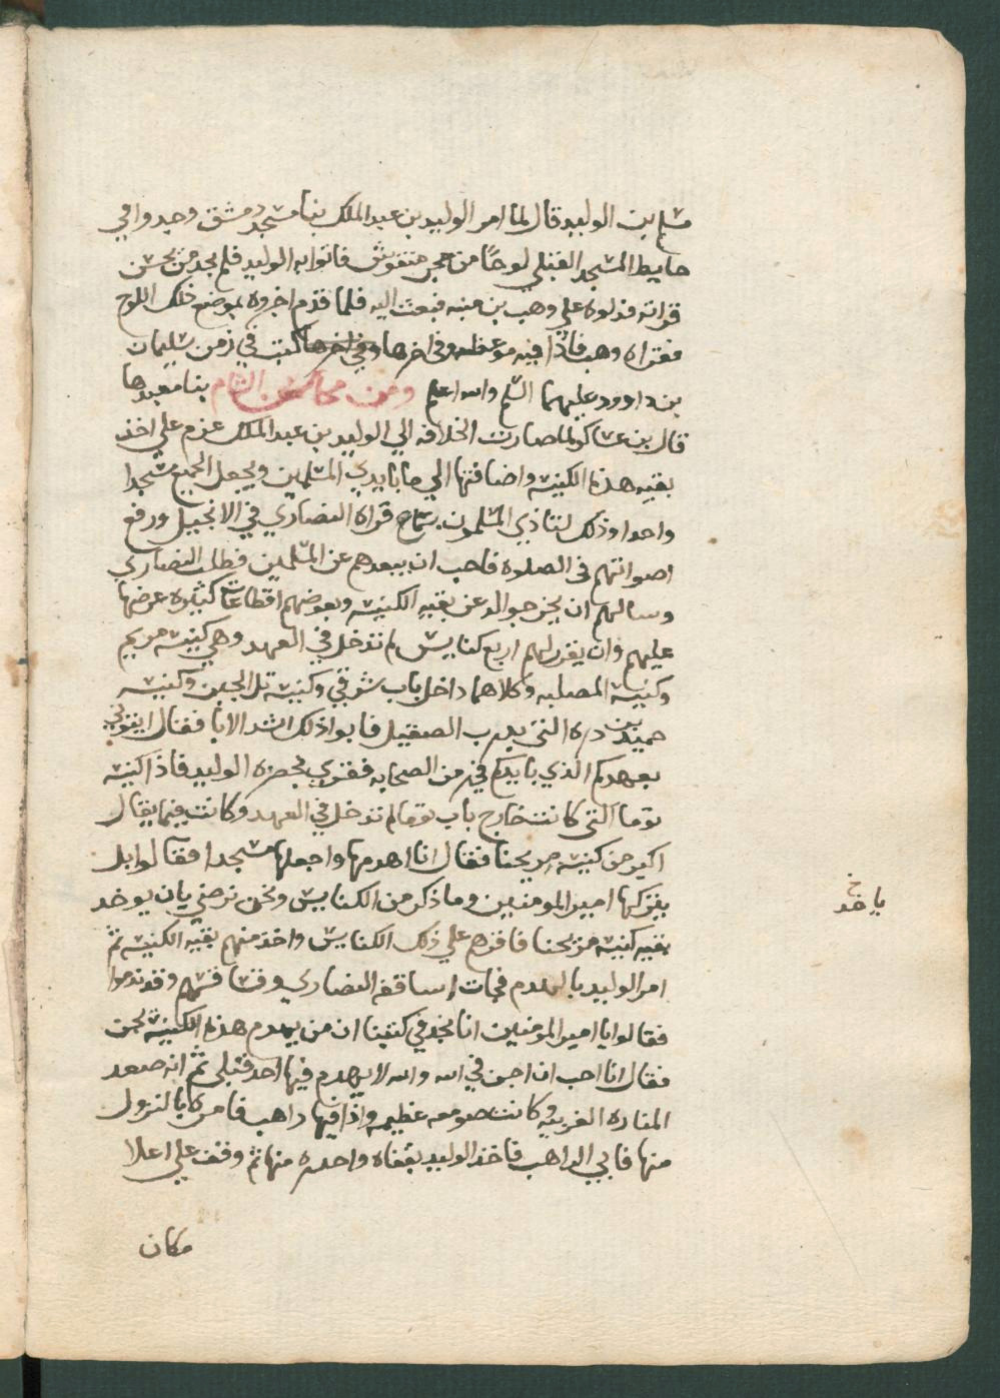 مسلم بن الوليد قال لما امر الوليد بن عبد الملك ببنا مسجد دمشق وجدوا في
حايط المسجد القبلي لوحًا من حجر منقوش فاتوا به الوليد فلم يجد من يحسن
قراته فدلوه علي وهب بن منبه فبعث اليه فلما قدم اخبروه بموضع ذلك اللوح
فقراه وهب فاذا فيه موعظه وفي اخرها وفي اخرها كتب في زمن سليمان
بن داوود عليهما السلم والله اعلم ومن محاسن الشام بنا معبدها
قال بن عساكر ولما صارت الخلافه الي الوليد بن عبد الملك عزم علي اخذ
بقيه هذه الكنيسه واضافتها الي ما بايدي المسلمين ويجعل الجميع مسجدا
واحدا وذلك لتاذي المسلمون بسماع قراه النصاري في الانجيل ورفع
اصواتهم في الصلوه فاحب ان يبعدهم عن المسلمين فطلب النصاري
وسالهم ان يخرجوا له عن بقيه الكنيسه ويعوضهم اقطاعات كثيره عرضها
عليهم وان يقر لهم اربع كنايس لم تدخل في العهد وهي كنيسه مريم
وكنيسه المصلبه وكلاهما داخل باب شرقي وكنيسه تل الجبن وكنيسه
حميد بن دره التي بدرب الصقيل فابوا ذلك اشد الابا فقال ايتوني
بعهدكم الذي بايديكم في زمن الصحابه فقري بحضره الوليد فاذا كنيسه
توما التي كانت خارج باب توما لم تدخل في العهد وكانت فيما يقال
اكبر من كنيسه مريحنا فقال انا اهدمها واجعلها مسجدا فقالوا بل
يتركها امير المومنين وما ذكر من الكنايس ونحن نرضي بان يوخد
ياخد
خ
بقيه كنيسه مريحنا فاقرهم علي ذلك الكنايس واخذ منهم بقيه الكنيسه ثم
امر الوليد بالهدم فجات اساقفه النصاري وقساقستهم وقد ندموا
فقالوا يا امير المومنين انا نجد في كتبنا ان من يهدم هذه الكنيسه يجن
فقال انا احب ان اجن في الله والله لا يهدم فيها احد قبلي ثم انه صعد
المناره الغربيه وكانت صومعه عظيمه واذا فيها راهب فامره بالنزول
منها فابي الراهب فاخذ الوليد بقفاه واحدره منها ثم وقف علي اعلا
مكان